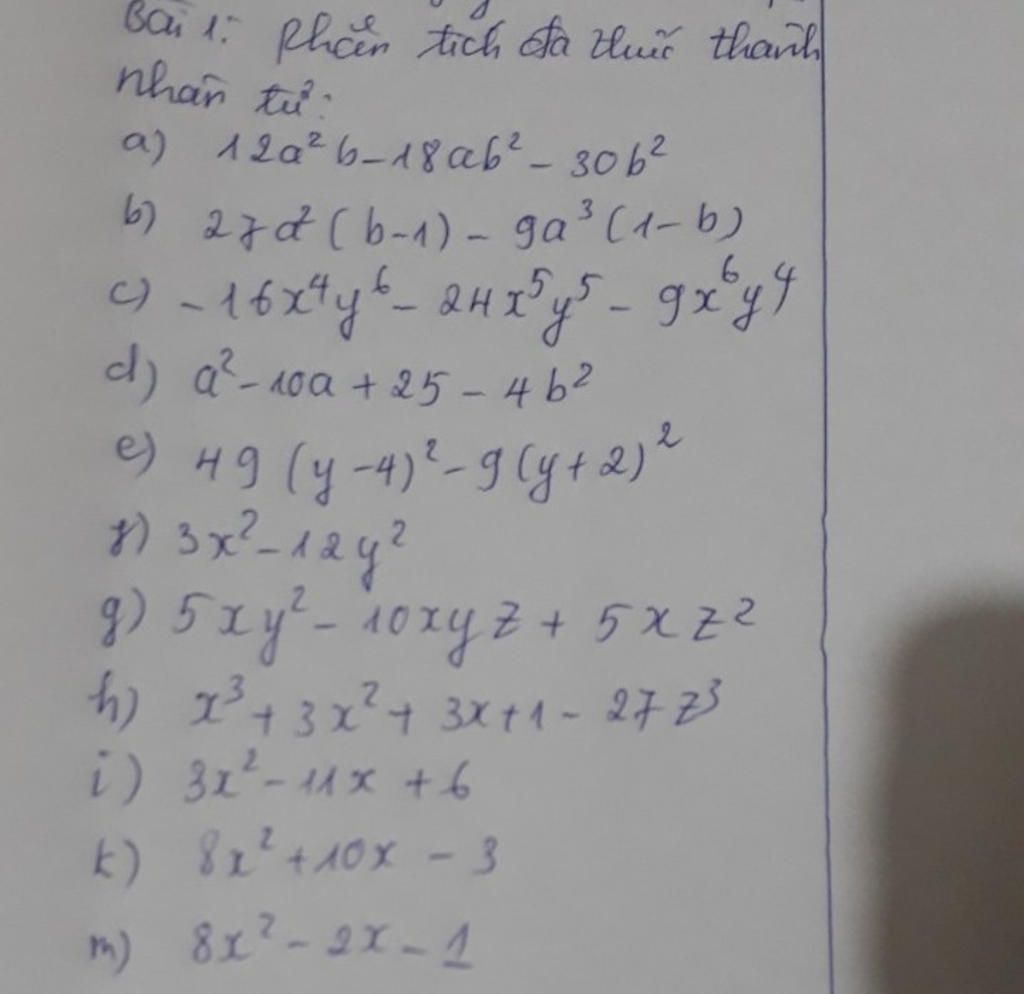 Bài 1: Phân tích đa thức thành
nhân tử:
a) 12a²b-18ab² - 30b²
b) 27a²(b-1) - 9a³(1-b)
c) -16x⁴y⁶ - 24x⁵y⁵ - 9x⁶y⁴
d) a²-10a + 25 - 4b²
e) 49 (y-4)² - 9(y+2)²
f) 3x²-12y²
g) 5xy² - 10xyz + 5xz²
h) x³ + 3x² + 3x+1 - 27z³
i) 3x² - 11x + 6
k) 8x² + 10x - 3
m) 8x² - 2x - 1